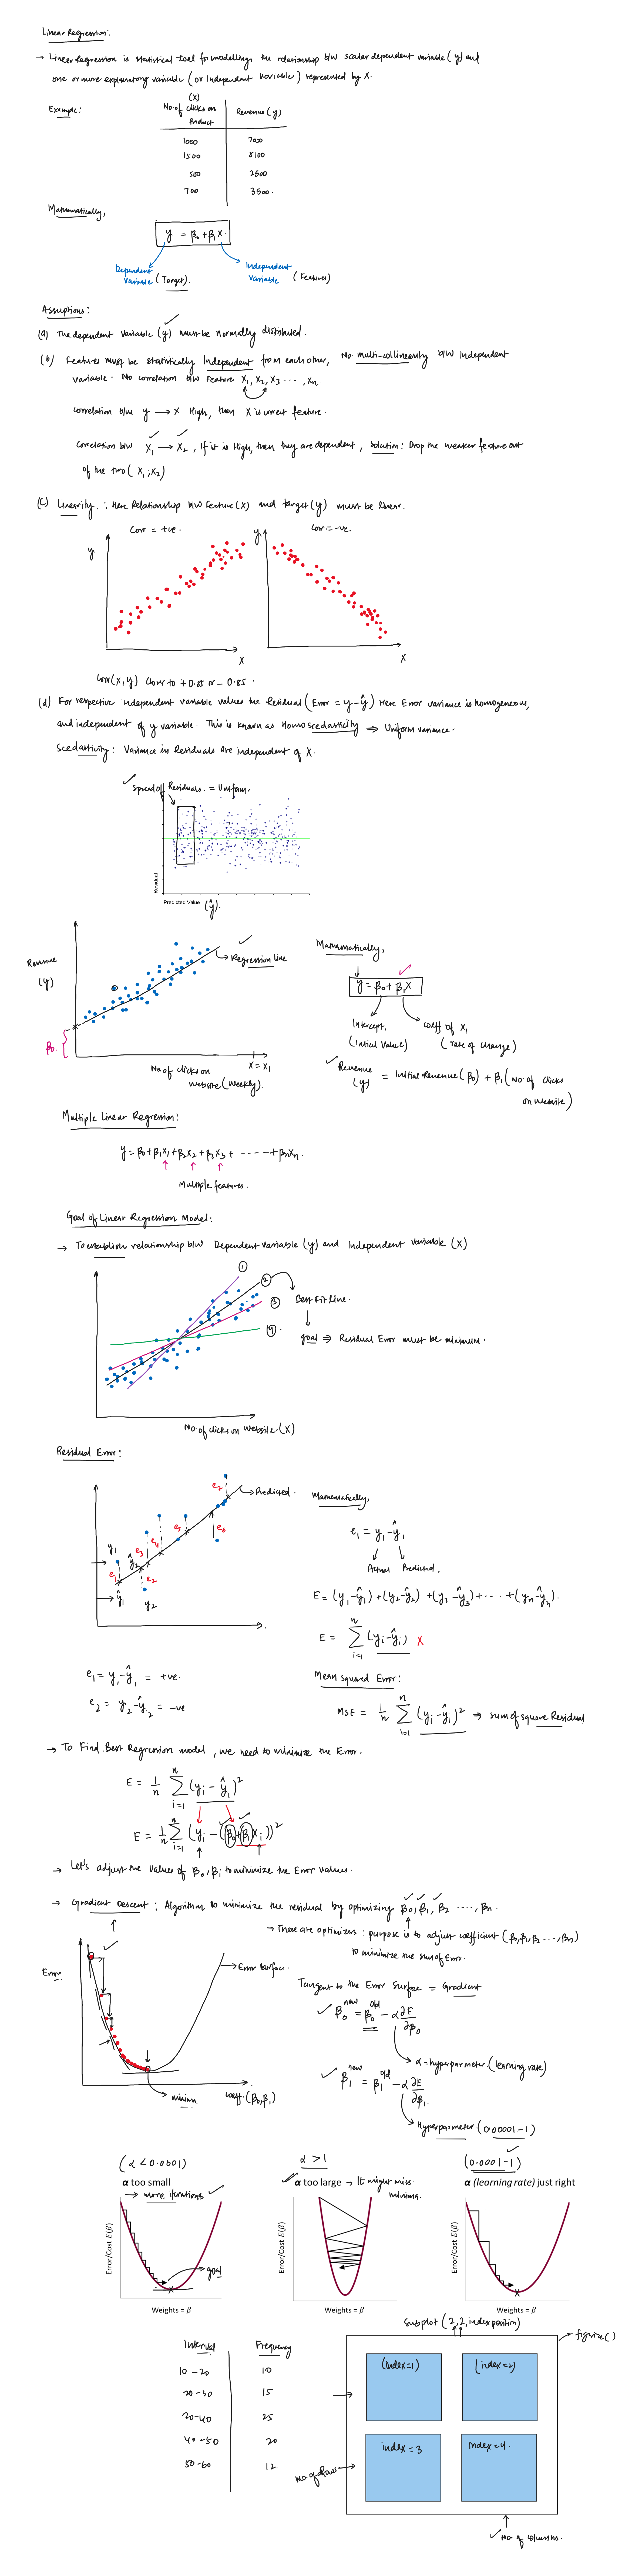 Linear Regression:
→ Linear Regression is statistical tool for modelling the relationship b/w scalar dependent variable (y) and
one or more explanatory variable (or Independent variable) represented by X.
Example:
(X)
No. of clicks on Product
Revenue (y)
1000 7000
1500 8100
500 2500
700 3500
Mathematically,
y = β₀ + β₁X
Dependent Variable (Target)
Independent Variable (Features)
Assumptions:
(a) The dependent variable (y) must be normally distributed.
(b) Features must be statistically Independent from each other, No multi-collinearity b/w independent
variable. No correlation b/w feature X₁, X₂, X₃ ..., Xn.
correlation b/w y → X High, then X is correct feature.
Correlation b/w X₁ → X₂, If it is High, then they are dependent, solution: Drop the weaker feature out
of the two (X₁, X₂)
(c) Linearity: Here Relationship b/w Feature (X) and target (y) must be linear.
Corr = +ve.
Corr = -ve.
y
y
X
X
Corr(X, y) Close to +0.85 or -0.85.
(d) For respective independent variable values the Residual (Error = y - ŷ) Here Error variance is homogeneous,
and independent of y variable. This is known as Homoscedasticity ⇒ Uniform variance.
Scedasticity: Variance in Residuals are independent of X.
Spread of Residuals = Uniform.
Residual
Predicted Value (ŷ)
Revenue (y)
Regression line
β₀
No. of clicks on website (weekly)
X = X₁
Mathematically,
y = β₀ + β₁X
Intercept (Initial Value)
coeff of X₁ (rate of change)
Revenue (y) = Initial Revenue (β₀) + β₁ (No. of clicks on website)
Multiple Linear Regression:
y = β₀ + β₁X₁ + β₂X₂ + β₃X₃ + ---- + βnXn.
Multiple features.
Goal of Linear Regression Model:
→ To establish relationship b/w Dependent variable (y) and Independent variable (X)
①
②
③
④
Best Fit line.
goal ⇒ Residual Error must be minimum.
No. of clicks on website (X)
Residual Error:
Predicted.
y₁
ŷ₁
ŷ₂
y₂
e₁
e₂
e₃
e₄
e₅
e₆
e₇
Mathematically,
e₁ = y₁ - ŷ₁
Actual Predicted.
E = (y₁-ŷ₁) + (y₂-ŷ₂) + (y₃-ŷ₃) + .... + (yn-ŷn).
E = Σ (yi - ŷi) X
n
i=1
e₁ = y₁ - ŷ₁ = +ve
e₂ = y₂ - ŷ₂ = -ve
Mean squared Error:
MSE = 1/n Σ (yi - ŷi)² ⇒ sum of square Residual
n
i=1
→ To Find Best Regression model, we need to minimize the Error.
E = 1/n Σ (yi - ŷi)²
n
i=1
E = 1/n Σ (yi - (β₀ + β₁Xi))²
n
i=1
→ Let's adjust the values of β₀, β₁ to minimize the Error values.
→ Gradient Descent: Algorithm to minimize the residual by optimizing β₀, β₁, β₂ ...., βn.
→ These are optimizers: purpose is to adjust coefficient (β₀, β₁, β₂ ..., βn)
to minimize the sum of Error.
Error
Error surface
minima
coeff. (β₀, β₁)
Tangent to the Error surface = Gradient
β₀ new = β₀ old - α ∂E/∂β₀
α = hyperparmeter (learning rate)
β₁ new = β₁ old - α ∂E/∂β₁
Hyperparmeter (0.00001 - 1)
(α < 0.0001)
α too small
→ more iterations
goal
Error/Cost E(β)
Weights = β
α > 1
α too large → It might miss minima.
Error/Cost E(β)
Weights = β
(0.0001 - 1)
α (learning rate) just right
Error/Cost E(β)
Weights = β
Interval Frequency
10-20 10
20-30 15
30-40 25
40-50 20
50-60 12
subplot (2,2, index position)
figsize()
(Index=1)
(index=2)
index=3
Index=4.
No. of Row
No. of columns.